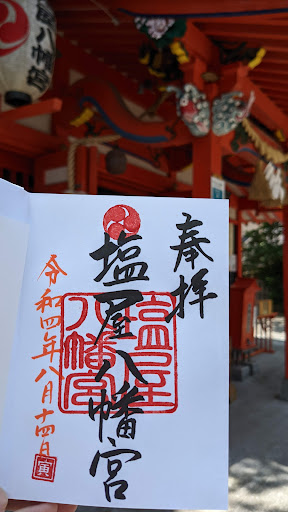 八幡宮
奉拝
塩屋八幡宮
塩屋
八幡宮
令和四年八月十四日
寅